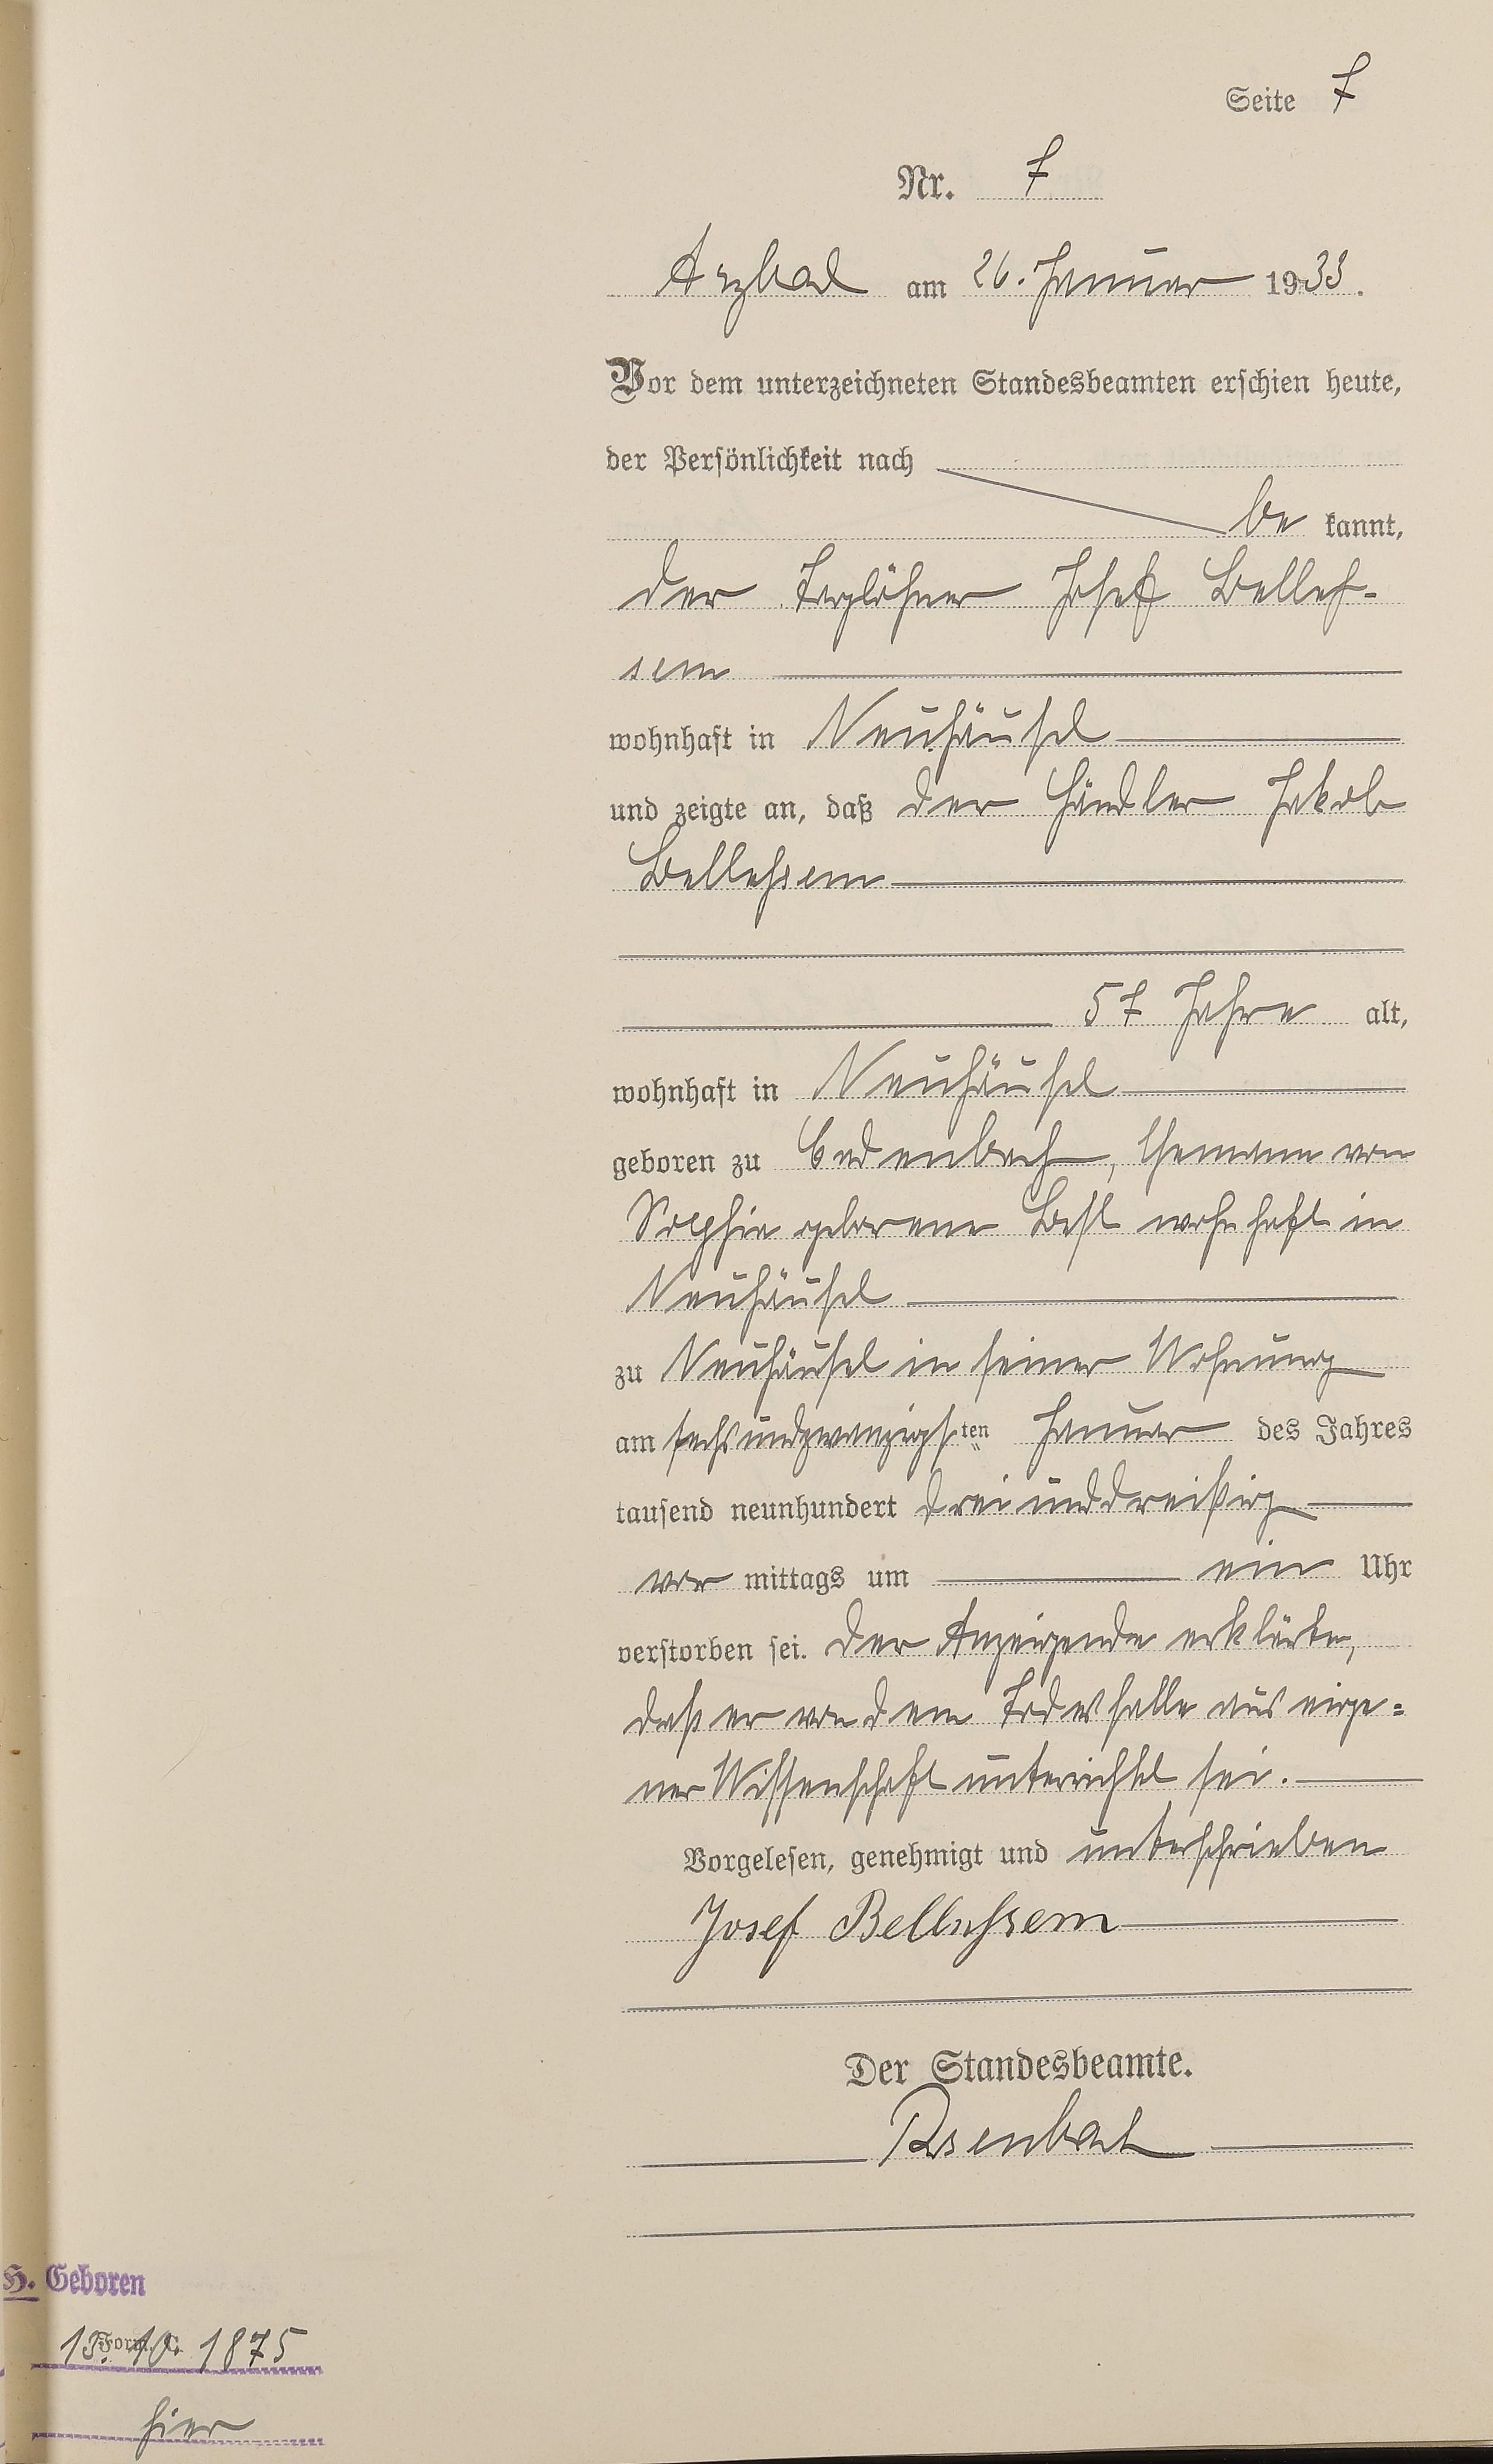 Seite 7
Nr. 7
Arzbach am 26. Januar 1933.
Vor dem unterzeichneten Standesbeamten erschien heute,
der Persönlichkeit nach
be kannt,
der Taglöhner Josef Belleh-
sem
wohnhaft in Neuhäusel
und zeigte an, daß der Händler Jakob
Bellehsem
57 Jahre alt,
wohnhaft in Neuhäusel
geboren zu Cadenbach, Ehemann von
Sophie geborene Best wohnhaft in
Neuhäusel
zu Neuhäusel in seiner Wohnung
am sechsundzwanzigsten Januar des Jahres
tausend neunhundert dreiunddreißig
vor mittags um ein Uhr
verstorben sei. Der Anzeigende erklärte,
daß er von dem Todesfalle aus eige=
ner Wissenschaft unterrichtet sei.
Vorgelesen, genehmigt und unterschrieben
Josef Bellehsem
Der Standesbeamte.
H. Geboren
Form. C.
15. 10. 1875
hier